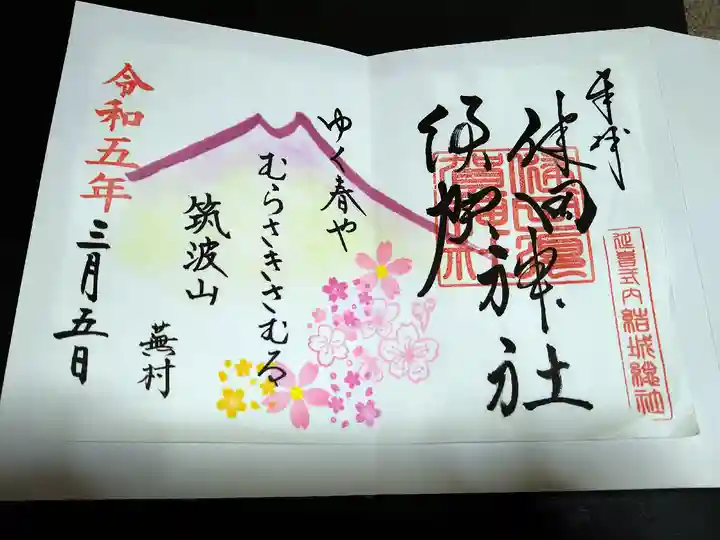 奉拝
健田神社
須賀神社
延喜式内 結城總社
ゆく春や
むらさきさむる
筑波山
蕪村
令和五年
三月五日